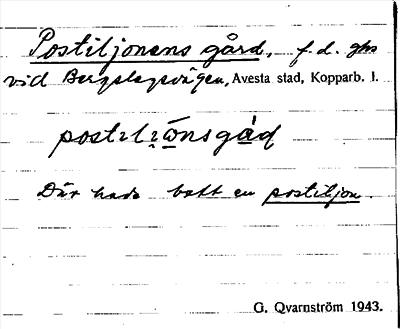 Postiljonens gård, f.d. ghs
vid Bergslagsvägen, Avesta stad, Kopparb. l.
postiliōnsgåd
Där hade bott en postiljon.
G. Qvarnström 1943.